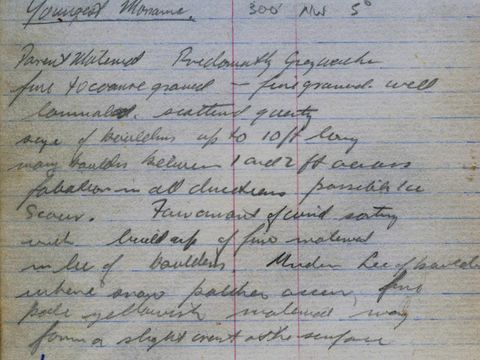 Youngest Moraine. 300' NW 5°
Parent Material Predominantly Greywacke
fine to coarse grained — fine grained well
laminated. scattered quartz
size of boulders up to 10 ft long
many boulders between 1 and 2 ft across
in all directions possible Ice
Scour. Fair amount of wind sorting
with build up of fine material
in lee of boulders Under Lee of boulders
where snow patches occur, fine
pale yellowish material may
form a slight crust at the surface